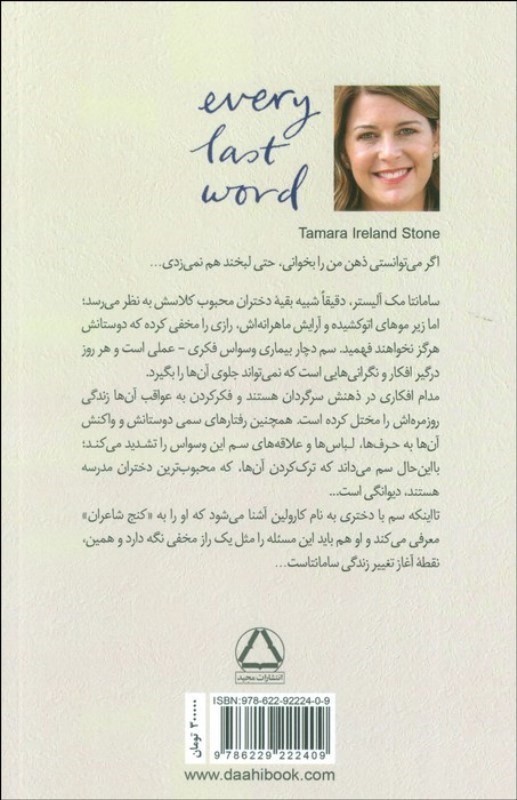 every
last
word
Tamara Ireland Stone
اگر می‌توانستی ذهن من را بخوانی، حتی لبخند هم نمی‌زدی...
سامانتا مک آلیستر، دقیقاً شبیه بقیهٔ دختران محبوب کلاسش به نظر می‌رسد؛
اما زیر موهای اتوکشیده و آرایش ماهرانه‌اش، رازی را مخفی کرده که دوستانش
هرگز نخواهند فهمید. سم دچار بیماری وسواس فکری - عملی است و هر روز
درگیر افکار و نگرانی‌هایی است که نمی‌تواند جلوی آن‌ها را بگیرد.
مدام افکاری در ذهنش سرگردان هستند و فکرکردن به عواقب آن‌ها زندگی
روزمره‌اش را مختل کرده است. همچنین رفتارهای سمی دوستانش و واکنش
آن‌ها به حرف‌ها، لباس‌ها و علاقه‌های سم این وسواس را تشدید می‌کند؛
بااین‌حال سم می‌داند که ترک‌کردن آن‌ها، که محبوب‌ترین دختران مدرسه
هستند، دیوانگی است...
تااینکه سم با دختری به نام کارولین آشنا می‌شود که او را به «کنج شاعران»
معرفی می‌کند و او هم باید این مسئله را مثل یک راز مخفی نگه دارد و همین،
نقطهٔ آغاز تغییر زندگی سامانتاست...
انتشارات مجید
ISBN: 978-622-92224-0-9
۳۰۰۰۰۰ تومان
9 786229 222409
www.daahibook.com